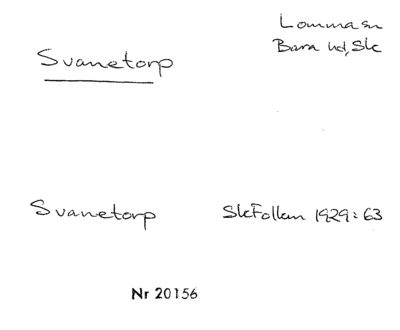 Lomma sn
Bara hd, Sk
Svanetorp
Svanetorp SkFolkm 1929:63
Nr 20156